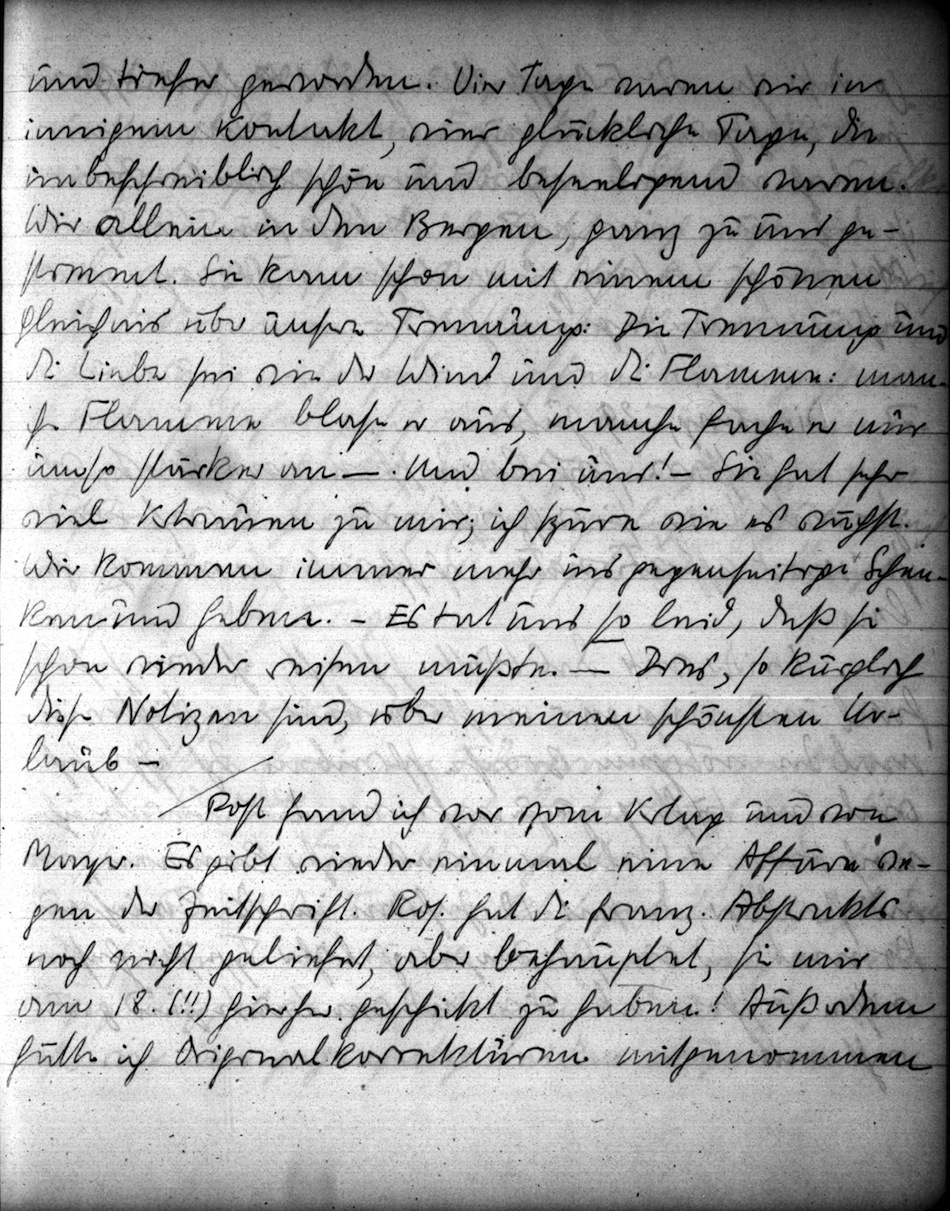 und tiefer geworden. Vier Tage waren wir in
innigem Kontakt, vier glückliche Tage, die
unbeschreiblich schön und beseeligend waren.
Wir allein in den Bergen, ganz zu uns ge-
stimmt. Sie kam schon mit einem schönen
Gleichnis über unsere Trennung: Die Trennung und
die Liebe sei wie der Wind und die Flamme: man-
che Flamme blase er aus, manche fache er nur
umso stärker an —. Und bei uns! — Sie hat sehr
viel Vertrauen zu mir; ich spüre wie es wächst.
Wir kommen immer mehr ins gegenseitige Schen-
ken und Geben. — Es tut uns so leid, daß sie
schon wieder reisen mußte. — Dies, so kürzlich
diese Notizen sind, über meinen schönsten Ur-
laub —
Post fand ich vor vom und von
Mayr. Es gibt wieder einmal eine Affäre we-
gen der Zeitschrift. Ros. hat die franz. Abstrakts
noch nicht geliefert, aber behauptet, sie mir
am 18. (!!) hierher geschickt zu haben! Außerdem
hätte ich Originalkorrekturen mitgenommen